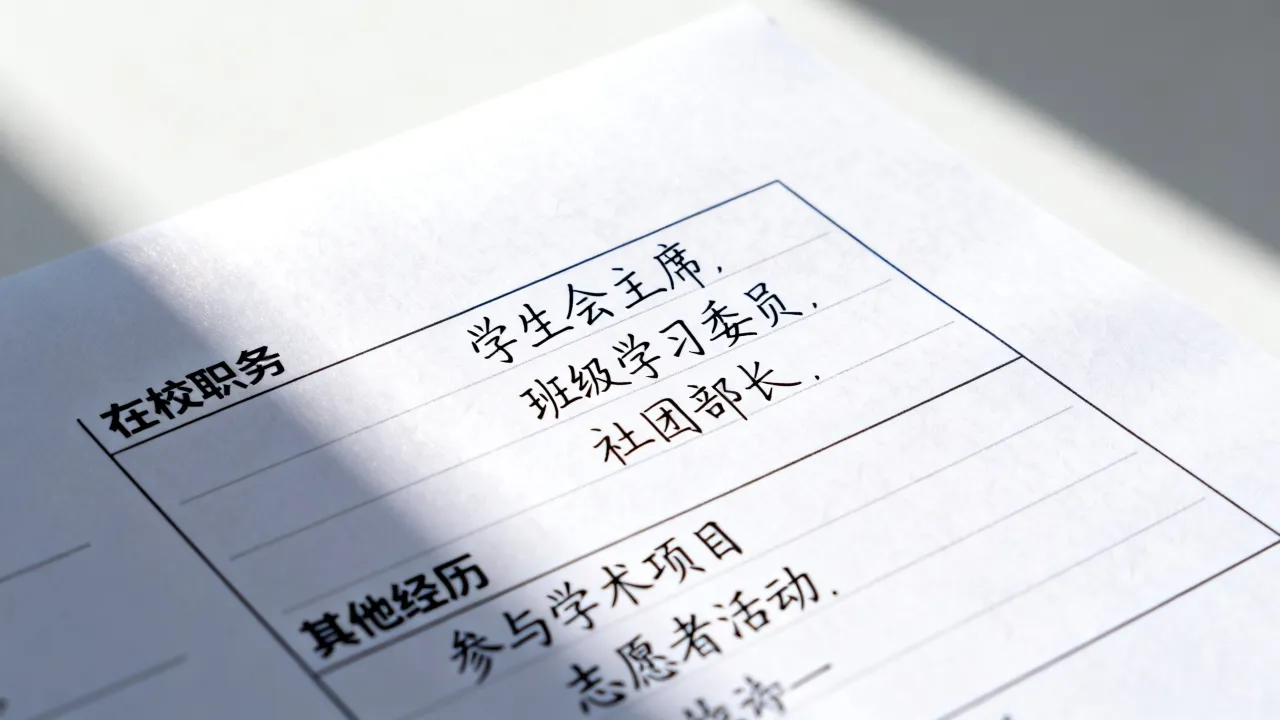 在校职务
学生会主席,
班级学习委员,
社团部长.
其他经历
参与学术项目
志愿者活动.